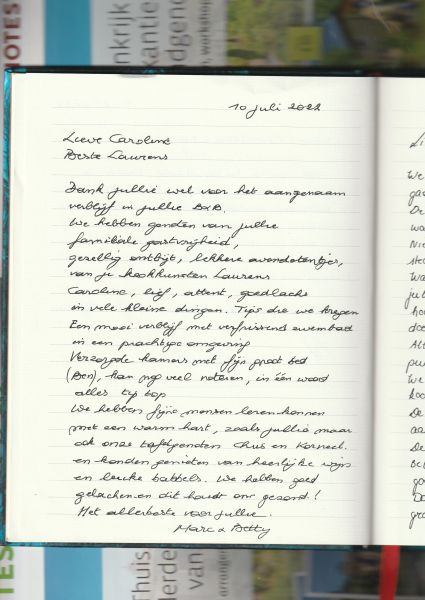 NOTES
nkrijk
kantie
dgen
n, workshop
10 juli 2022
Lieve Caroline
Beste Laurens
Dank jullie wel voor het aangenaam
verblijf in jullie B&B.
We hebben genoten van jullie
familiale gastvrijheid,
gezellig ontbijt, lekkere avondetentjes,
van je kookkunsten Laurens
Caroline, lief, attent, goedlachs
in vele kleine dingen. Tips die we kregen
Een mooi verblijf met verfrissend zwembad
in een prachtige omgeving
Verzorgde kamers met fijn groot bed
(Ben), kan nog veel noteren, in één woord
alles tip top
We hebben fijne mensen leren kennen
met een warm hart, zoals jullie maar
ook onze tafelgenoten Chris en Korneel.
en konden genieten van heerlijke wijn
en leuke babbels. We hebben goed
gelachen en dit houdt ons gezond!
Het allerbeste voor jullie.
Marc & Betty
We
We
De
De
TES
Thuis
derde
van